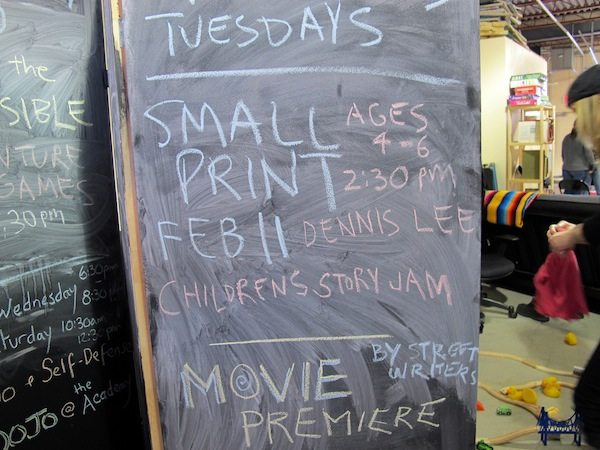 TUESDAYS
SMALL
PRINT
AGES
4-6
2:30 PM
FEB 11 DENNIS LEE
CHILDRENS STORY JAM
MOVIE
PREMIERE
BY STREET
WRITERS
the
SIBLE
NTURE
GAMES
:30pm
Wednesday 6:30
8:30
turday 10:30am
& Self-Defense
DOJO @ the Academy